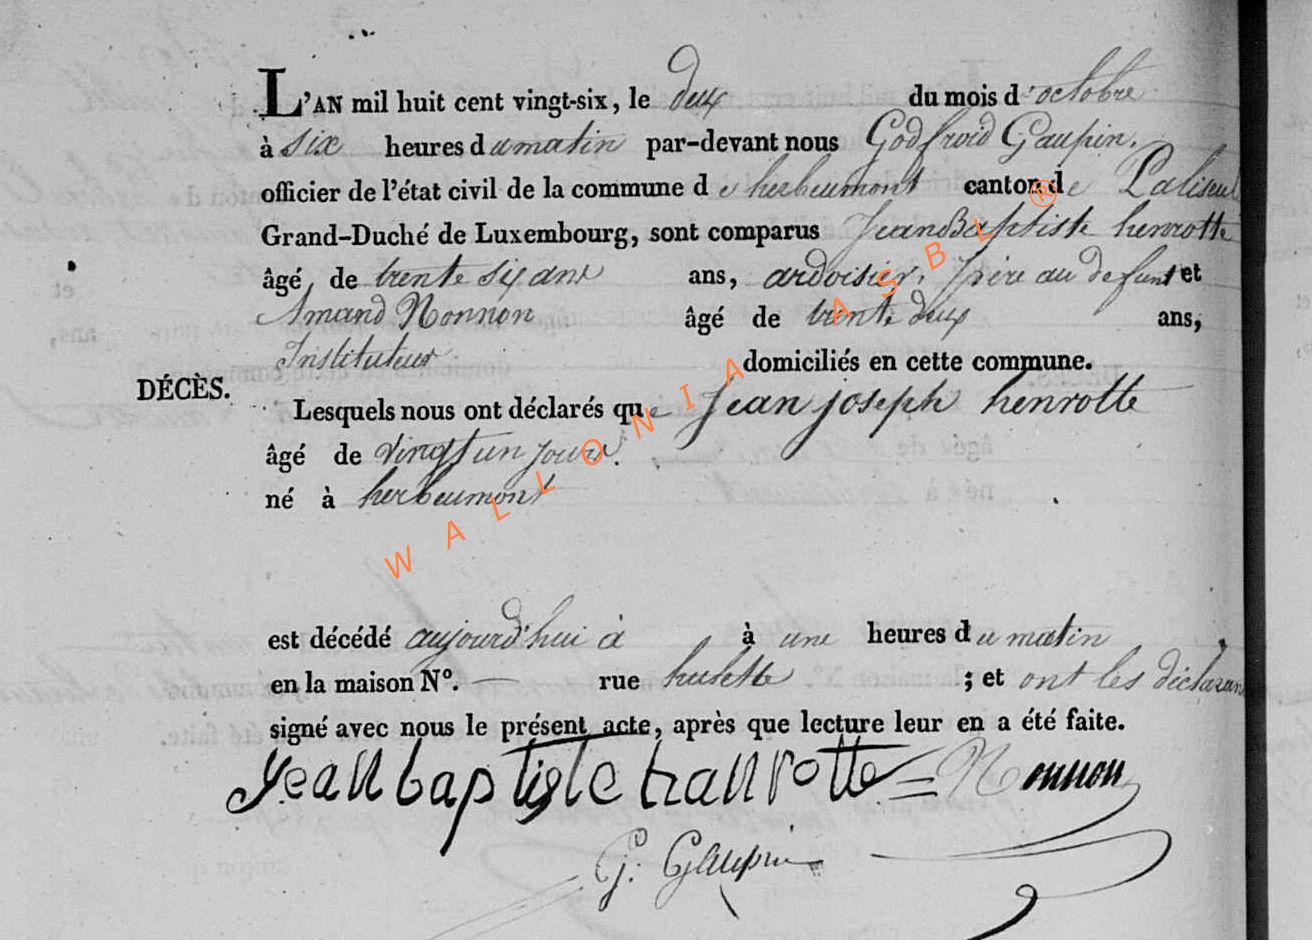 L'AN mil huit cent vingt-six, le deux du mois d'octobre
à six heures du matin par-devant nous Godfroid Gaupin,
officier de l'état civil de la commune de herbeumont canton de Paliseul
Grand-Duché de Luxembourg, sont comparus Jean Baptiste henrotte
âgé de trente six ans ans, ardoisier, père au defunt et
Amand Nonnon âgé de trente deux ans,
Instituteur domiciliés en cette commune.
DÉCÈS.
Lesquels nous ont déclarés que Jean joseph henrotte
âgé de vingt un jours.
né à herbeumont
est décédé aujourd'hui à à une heures du matin
en la maison N°. — rue hulette ; et ont les déclarans
signé avec nous le présent acte, après que lecture leur en a été faite.
Jean baptiste hanrotte Nonnon
G. Gaupin
WALLONIA ASBL ®